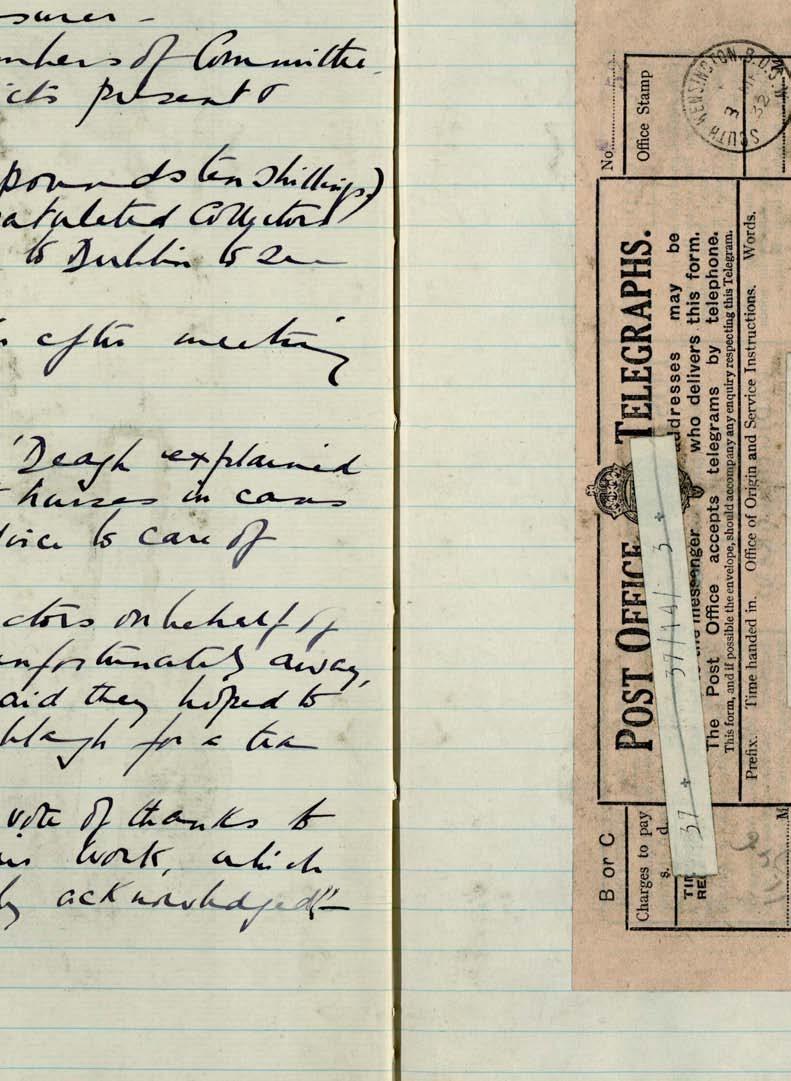 surer -
mbers of Committee.
icts present &
pounds ten shillings)
atulated Collectors
to Dublin to see
after meeting
'Deagh explained
nurses in cars
vice to care of
ctors on behalf of
unfortunately away,
aid they hoped to
blagh for a tea
vote of thanks to
work, which
ly acknowledged"
No.
Office Stamp
SOUTH KENSINGTON. B.O. S.W.
3
32
POST OFFICE TELEGRAPHS.
ddresses may be
the messenger who delivers this form.
The Post Office accepts telegrams by telephone.
This form, and if possible the envelope, should accompany any enquiry respecting this Telegram.
Prefix. Time handed in. Office of Origin and Service Instructions. Words.
37 + 37/14/ 3 +
B or C
Charges to pay
s. d.
TIM
RE
M